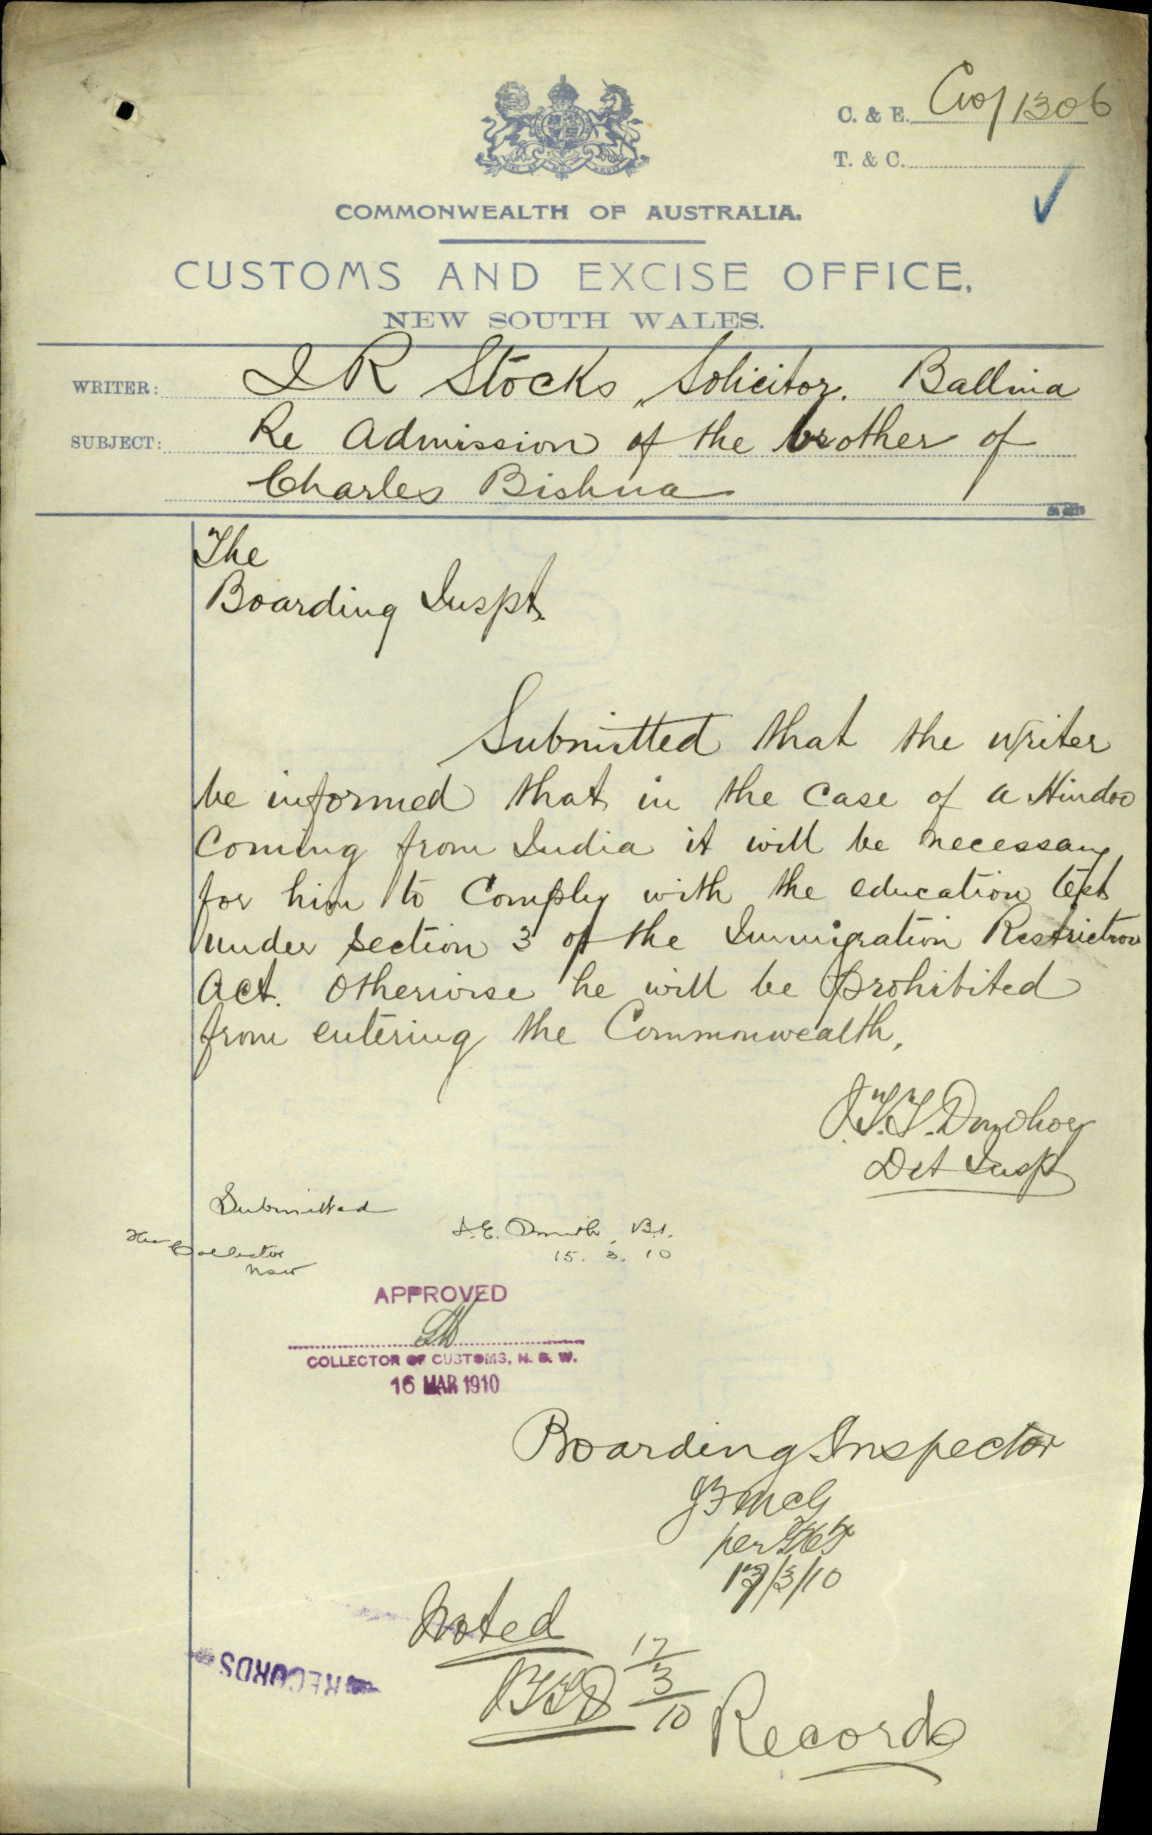 C. & E. C10/1306
T. & C.
COMMONWEALTH OF AUSTRALIA.
CUSTOMS AND EXCISE OFFICE,
NEW SOUTH WALES.
WRITER: I R Stocks, Solicitor. Ballina
SUBJECT: Re Admission of the brother of
Charles Bishna
The
Boarding Inspt.
Submitted that the writer
be informed that in the case of a Hindoo
Coming from India it will be necessary
for him to Comply with the education test
under section 3 of the Immigration Restriction
Act. Otherwise he will be prohibited
from entering the Commonwealth.
J.T.T. Donohoe
Det Insp
Submitted
The Collector
NSW
B.I.
15. 3. 10
APPROVED
COLLECTOR OF CUSTOMS, N. S. W.
16 MAR 1910
Boarding Inspector
per
17/3/10
Noted
17/3/10
RECORDS
Records